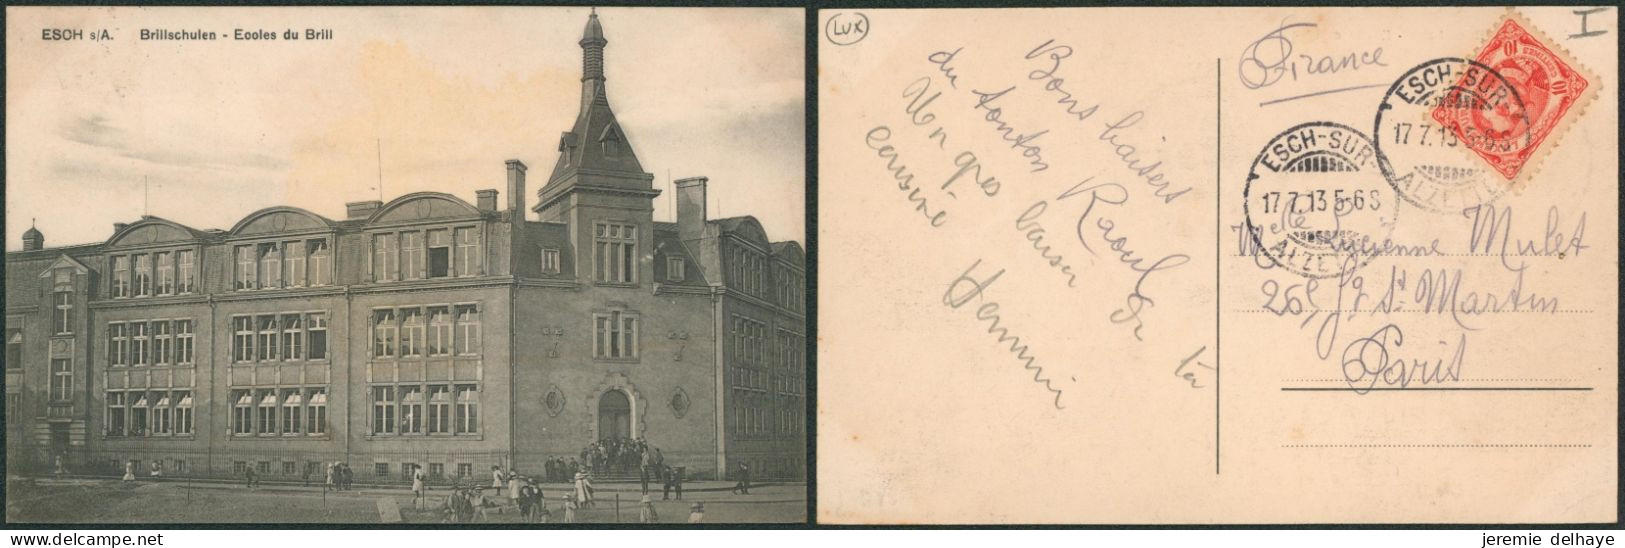 ESCH s/A. Brillschulen - Ecoles du Brill
LUX
I
France
Bons baisers
du tonton Raoul
Un gros baiser de ta
cousine
ESCH-SUR-
17.7.13 5-6 S
ALZETTE
ESCH-SUR-
17.7.13 5-6 S
ALZETTE
10 CENTIMES 10
Melle Lucienne Mulet
265, fg St Martin
Paris
jeremie delhaye